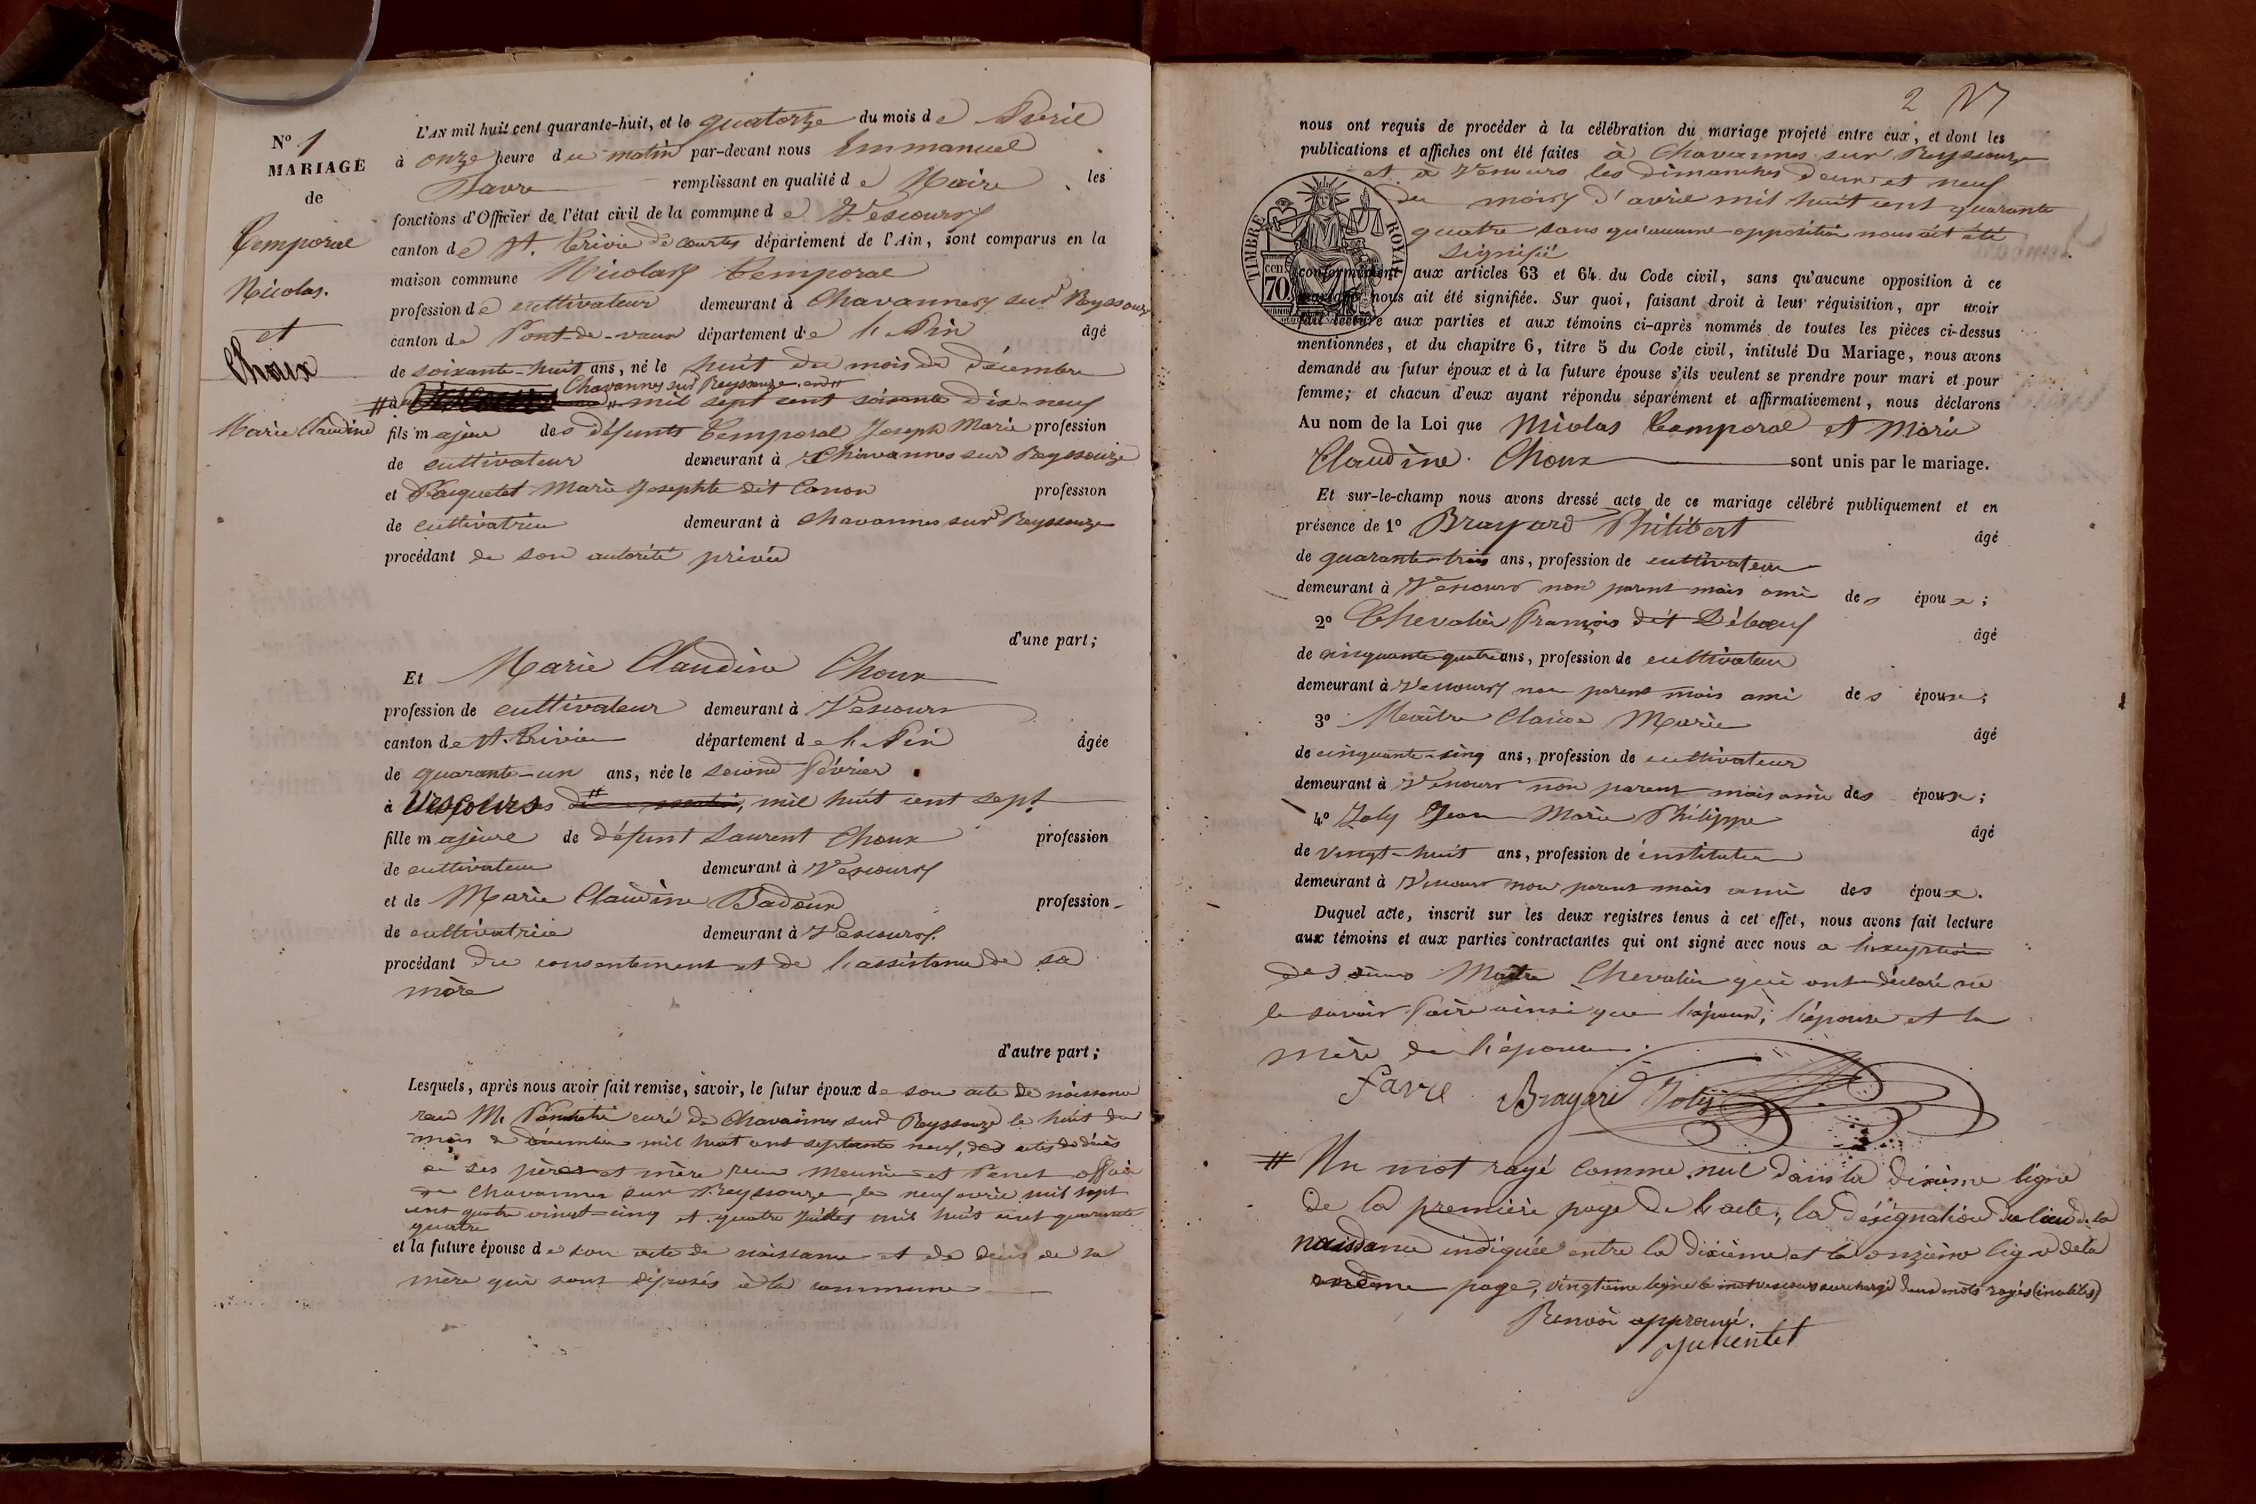 N° 1
MARIAGE
de
Temporal
Nicolas.
et
Choux
Marie Claudine
L'AN mil huit cent quarante-huit, et le quatorze du mois de Avril
à onze heure du matin par-devant nous Emmanuel
Favre remplissant en qualité de Maire les
fonctions d'Officier de l'état civil de la commune de Vescours
canton de St. Trivier de courtes département de l'Ain, sont comparus en la
maison commune Nicolas Temporal
profession de cultivateur demeurant à Chavannes sur Reyssouze
canton de Pont-de-vaux département de l'Ain âgé
de soixante-huit ans, né le huit du mois de décembre
Chavannes sur Reyssouze en
# à mil sept cent soixante dix-neuf
fils majeur des défunts Temporal Joseph Marie profession
de cultivateur demeurant à Chavannes sur Reyssouze
et Paquetet Marie Josephte dit Canon profession
de cultivatrice demeurant à Chavannes sur Reyssouze
procédant de son autorité privée
d'une part;
Et Marie Claudine Choux
profession de cultivateur demeurant à Vescours
canton de St. Trivier département de l'Ain âgée
de quarante-un ans, née le second février
à Vescours # mil huit cent sept
fille majeure de défunt Laurent Choux profession
de cultivateur demeurant à Vescours
et de Marie Claudine Badoux profession
de cultivatrice demeurant à Vescours.
procédant du consentement et de l'assistance de sa
mère
d'autre part;
Lesquels, après nous avoir fait remise, savoir, le futur époux de son acte de naissance
curé de Chavannes sur Reyssouze le huit du
mois de décembre mil huit cent septante neuf, des actes de décès
de ses père et mère Meunier et
de Chavannes sur Reyssouze le neuf avril mil sept
cent quatre vingt-cinq et quatre juillet mil huit cent quarante
quatre
et la future épouse de son acte de naissance et de décès de sa
mère qui sont déposés à la commune
2
nous ont requis de procéder à la célébration du mariage projeté entre eux, et dont les
publications et affiches ont été faites à Chavannes sur Reyssouze
et à Vescours les dimanches deux et neuf
du mois d'avril mil huit cent quarante
quatre sans qu'aucune opposition nous ait été
signifié
TIMBRE ROYAL
70 cen
conformément aux articles 63 et 64 du Code civil, sans qu'aucune opposition à ce
mariage nous ait été signifiée. Sur quoi, faisant droit à leur réquisition, apr avoir
fait lecture aux parties et aux témoins ci-après nommés de toutes les pièces ci-dessus
mentionnées, et du chapitre 6, titre 5 du Code civil, intitulé Du Mariage, nous avons
demandé au futur époux et à la future épouse s'ils veulent se prendre pour mari et pour
femme; et chacun d'eux ayant répondu séparément et affirmativement, nous déclarons
Au nom de la Loi que Nicolas Temporal et Marie
Claudine Choux sont unis par le mariage.
Et sur-le-champ nous avons dressé acte de ce mariage célébré publiquement et en
présence de 1° Brayard Philibert âgé
de quarante-trois ans, profession de cultivateur
demeurant à Vescours non parent mais ami des époux;
2° Chevalier François dit Débœuf âgé
de cinquante quatre ans, profession de cultivateur
demeurant à Vescours non parent mais ami des époux;
3° Maître Claude Marie âgé
de cinquante-cinq ans, profession de cultivateur
demeurant à Vescours non parent mais ami des époux;
4° Joly Jean Marie Philippe âgé
de vingt-huit ans, profession de instituteur
demeurant à Vescours non parent mais ami des époux.
Duquel acte, inscrit sur les deux registres tenus à cet effet, nous avons fait lecture
aux témoins et aux parties contractantes qui ont signé avec nous a l'exception
des sieurs Maitre Chevalier qui ont déclaré ne
le savoir faire ainsi que l'époux, l'épouse et la
mère de l'épouse.
Favre Brayard Joly
# Un mot rayé comme nul dans la dixième ligne
de la première page de l'acte, la désignation du lieu de la
naissance indiquée entre la dixième et la onzième ligne de la
même page, vingtième ligne le mot vescours surchargé deux mots rayés (inutiles)
Renvoi approuvé.